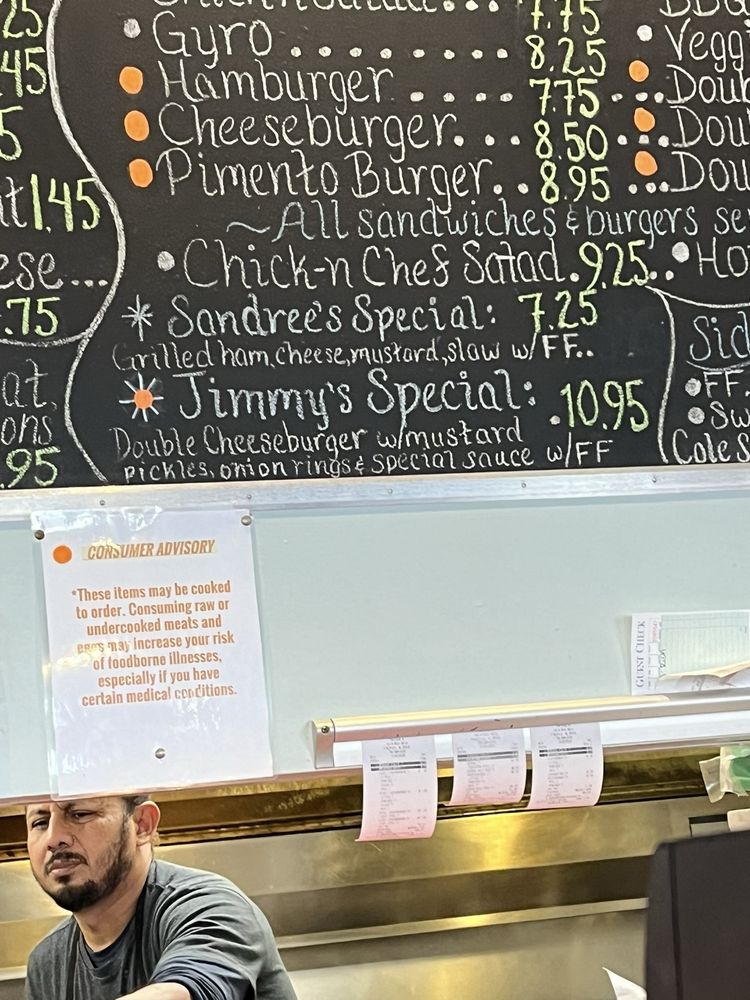 25
.45
5
1.45
ese...
.75
at,
ons
.95
7.75
Gyro ........ 8.25
Hamburger ..... 7.75
Cheeseburger.... 8.50
Pimento Burger.. 8.95
~All sandwiches & burgers se
Chick-n Chef Salad. 9.25
* Sandree's Special: 7.25
Grilled ham, cheese, mustard, slaw w/FF..
* Jimmy's Special: .10.95
Double Cheeseburger w/mustard
pickles, onion rings & Special sauce w/FF
Vegg
...Doub
...Dou
...Dou
..Ho
Sid
FF
Sw
Cole S
CONSUMER ADVISORY
*These items may be cooked
to order. Consuming raw or
undercooked meats and
eggs may increase your risk
of foodborne illnesses,
especially if you have
certain medical conditions.
GUEST CHECK